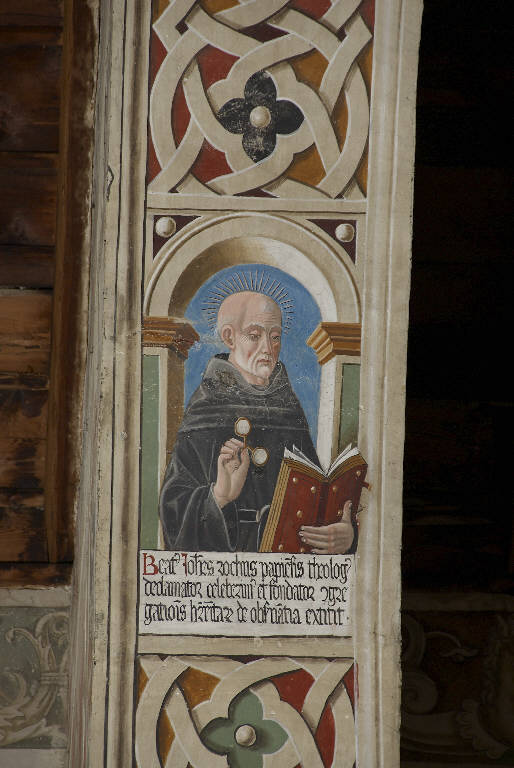 Beat⁹ Joh̃es rochus papiẽsis theolog⁹
declamator celeberim⁹ et fondator ↄgre
gationis hẽritar de obsẽuãtia extitit.